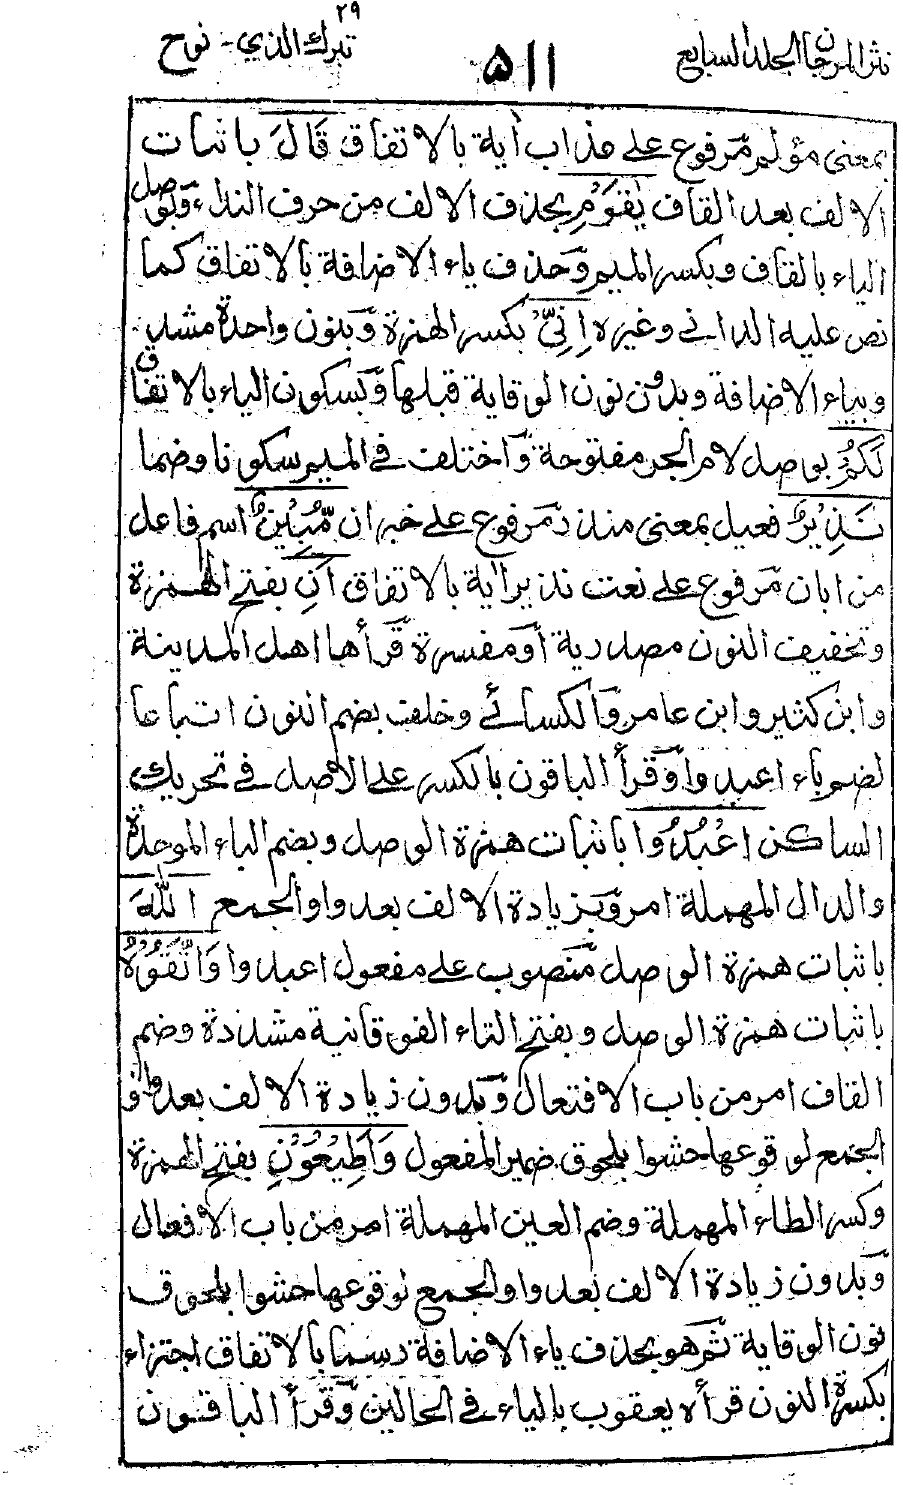 نثر المرجان المجلد السابع
٥١١
٢٩
تبرك الذي - نوح
بمعنى مؤلم مرفوع على عذاب أية بالاتفاق قَالَ باثبات
الالف بعد القاف يٰقَوْمِ بحذف الالف من حرف النداء وبوصل
الياء بالقاف وبكسر الميم وحذف ياء الاضافة بالاتفاق كما
نص عليه الداني وغيره اِنِّيْ بكسر الهمزة وبنون واحدة مشددة
وبياء الاضافة وبدون نون الوقاية قبلها وبسكون الياء بالاتفاق
لَكُمْ بوصل لام الجر مفتوحة واختلف في الميم سكونا وضما
نَذِيْرٌ فعيل بمعنى منذر مرفوع على خبر ان مُّبِيْنٌ اسم فاعل
من ابان مرفوع على نعت نذير أية بالاتفاق اَنِ بفتح الهمزة
وتخفيف النون مصدرية أو مفسرة قرأها اهل المدينة
وابن كثير وابن عامر والكسائي وخلف بضم النون اتباعا
لضم باء اعبدوا وقرأ الباقون بالكسر على الاصل في تحريك
الساكن اعْبُدُوا باثبات همزة الوصل وبضم الباء الموحدة
والدال المهملة امر وبزيادة الالف بعد واو الجمع اللّٰهَ
باثبات همزة الوصل منصوب على مفعول اعبدوا وَاتَّقُوْهُ
باثبات همزة الوصل وبفتح التاء الفوقانية مشددة وضم
القاف امر من باب الافتعال وبدون زيادة الالف بعد واو
الجمع لوقوعها حشوا بلحوق ضمير المفعول وَاَطِيْعُوْنِ بفتح الهمزة
وكسر الطاء المهملة وضم العين المهملة امر من باب الافعال
وبدون زيادة الالف بعد واو الجمع لوقوعها حشوا بلحوق
نون الوقاية ثم هو بحذف ياء الاضافة رسما بالاتفاق اجتزاء
بكسرة النون قرأه يعقوب بالياء في الحالين وقرأ الباقون